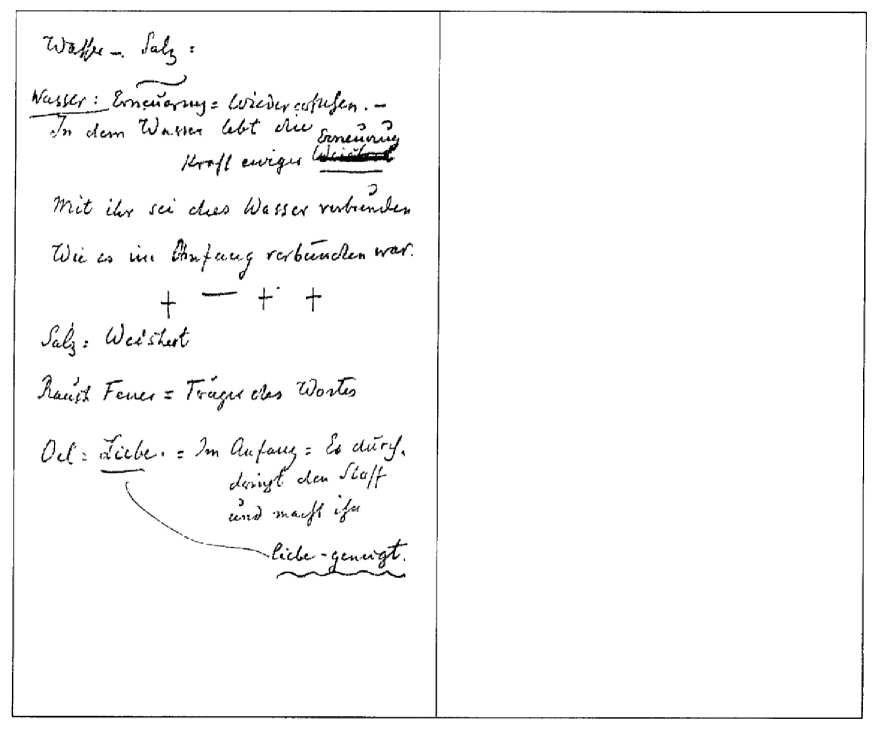 Wasser – Salz :
Wasser : Erneuerung = Wiedererstehen. –
In dem Wasser lebt die
Erneuerung
Kraft ewiger Weisheit
Mit ihr sei dies Wasser verbunden
Wie es im Anfang verbunden war.
+ — + +
Salz : Weisheit
Rauch Feuer = Träger des Wortes
Oel : Liebe. = Im Anfang = Es durch-
dringt den Stoff
und macht ihn
liebe-geneigt.